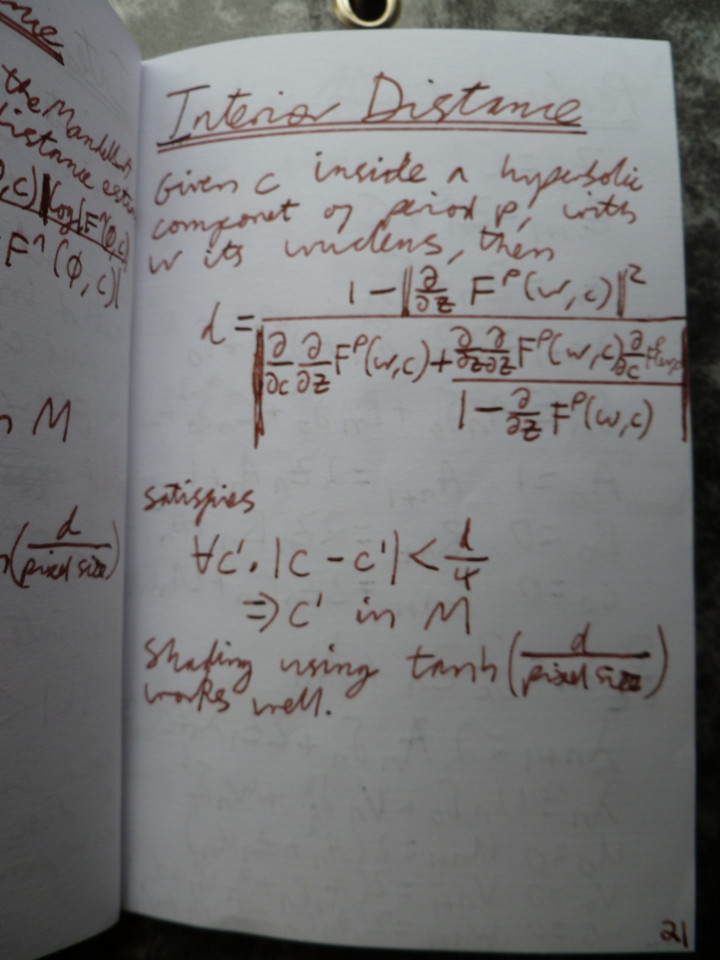 me
the Mandelb
distance estim
0,c)|log|F^n(0,c)|
F^n(0,c)|
n M
(d/pixel size)
Interior Distance
Given c inside a hyperbolic
componet of period p, with
w its nucleus, then
d = (1 - |∂/∂z F^p(w,c)|^2) / |∂/∂c ∂/∂z F^p(w,c) + (∂/∂z ∂/∂z F^p(w,c) ∂/∂c F^p(w,c)) / (1 - ∂/∂z F^p(w,c))|
satisfies
∀c'. |c - c'| < d/4
⇒ c' in M
Shading using tanh(d/pixel size)
works well.
21